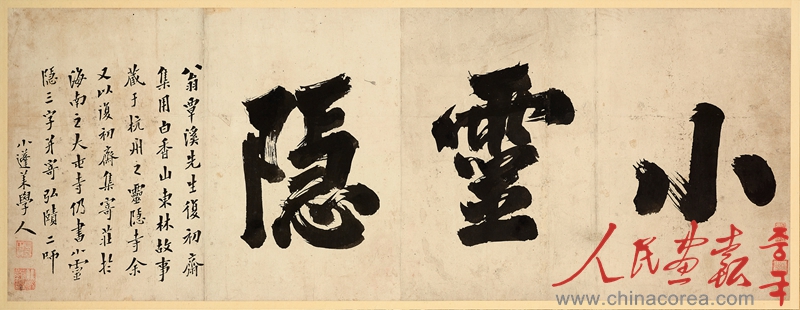 小靈隱
翁覃溪先生復初齋
集用白香山東林故事
藏于杭州之靈隱寺余
又以復初齋集寄莊於
海南之大芚寺仍書小靈
隱三字并寄弘賾二師
小蓬萊學人
人民画报 중국
www.chinacorea.com